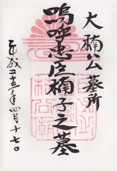 大楠公墓所
嗚呼忠臣楠子之墓
平成二十三年四月十七日